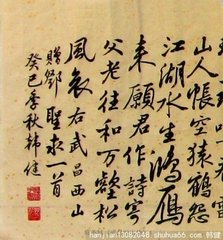 山人帳空猿鶴怨
江湖水生鴻雁
来願君作詩寄
父老往和万壑松
風哀右武昌西山
贈鄧聖求一首
癸巳季秋韓健
hanjian13082048 shuhua66.com 韩健